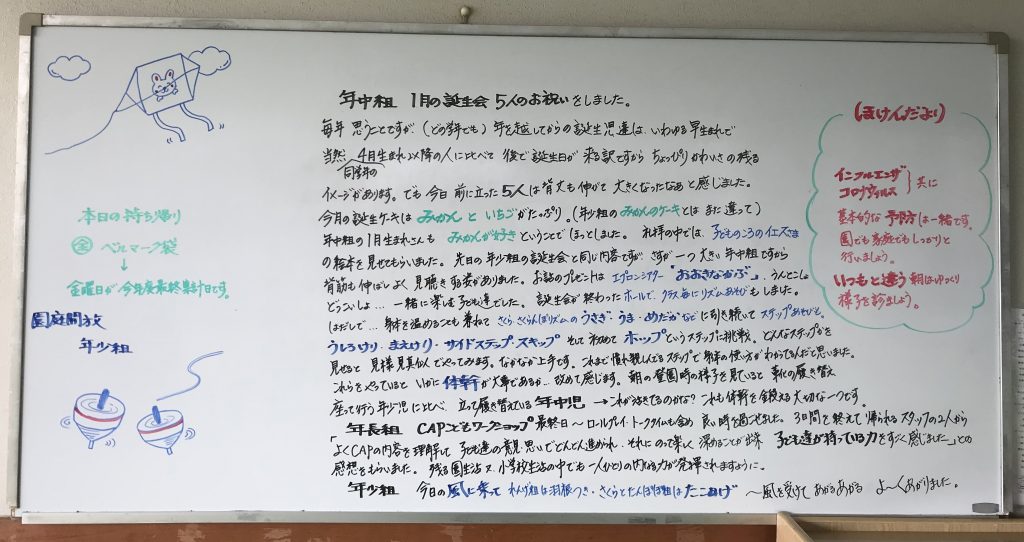 本日の持ち帰り
金 ベルマーク袋
↓
金曜日が今年度最終集計日です。
園庭開放
年少組
年中組 1月の誕生会 5人のお祝いをしました。
毎年 思うことですが、(どの学年でも) 年を越してからの誕生児達は、いわゆる早生まれで
当然 同学年の 4月生まれ以降の人に比べて 後で誕生日が来る訳ですから ちょっぴりかわいさの残る
イメージがあります。でも今日 前に立った5人は背丈も伸びて 大きくなったなあと感じました。
今月の誕生ケーキは みかんと いちごがたっぷり。(年少組のみかんのケーキとは また違って)
年中組の1月生まれさんも みかんが好き ということで ほっとしました。 礼拝の中では、子どものころのイエスさま
の絵本を見せてもらいました。 先日の年少組の誕生会と同じ内容ですが さすが一つ大きい年中組ですから
背筋も伸ばし よく見聴きする姿がありました。お話のプレゼントは エプロンシアター "おおきなかぶ"。うんとこしょ
どっこいしょ… 一緒に楽しむ子ども達でした。 誕生会が終わった ホールで、クラス毎にリズムあそびもしました。
はだしで… 身体を温めることも兼ねて さくら・さくらんぼリズムの うさぎ・うま・めだか などに引き続いて ステップあそびも。
うしろけり・まえけり・サイドステップ・スキップ そして 初めて ホップというステップに挑戦。 どんなステップかを
見せると 見様見真似でやってみます。なかなか上手です。 これまで慣れ親しんでるステップで 身体の使い方がわかってるんだと思いました。
これらをやっていると いかに 体幹が大事であるか… 改めて感じます。 朝の登園時の様子を見ていると 靴の履き替え
座って行う年少児に比べ、立って履き替えている 年中児 → これが活きてるのかな? これも体幹を鍛える大切な一つです。
年長組 CAPこどもワークショップ 最終日 〜 ロールプレイ・トークタイムも含め 良い時を過ごせました。 3日間を終えて 帰られるスタッフの2人から
「よくCAPの内容を理解して 子ども達の意見・思いでどんどん進められ、それにのって楽しく 深めることが出来 子ども達が持っている力をすごく感じました」との
感想をもらいました。 残る園生活 又 小学校生活の中でも 一人ひとりの内なる力が発揮されますように。
年少組 今日の 風に乗って れんげ組は羽根つき・さくらとたんぽぽ組は たこあげ 〜風を受けて あがるあがる よ〜くあがりました。
ほけんだより
インフルエンザ
コロナウィルス } 共に
基本的な 予防は一緒です。
園でも家庭でもしっかりと
行いましょう。
いつもと違う 朝はゆっくり
様子を診ましょう。